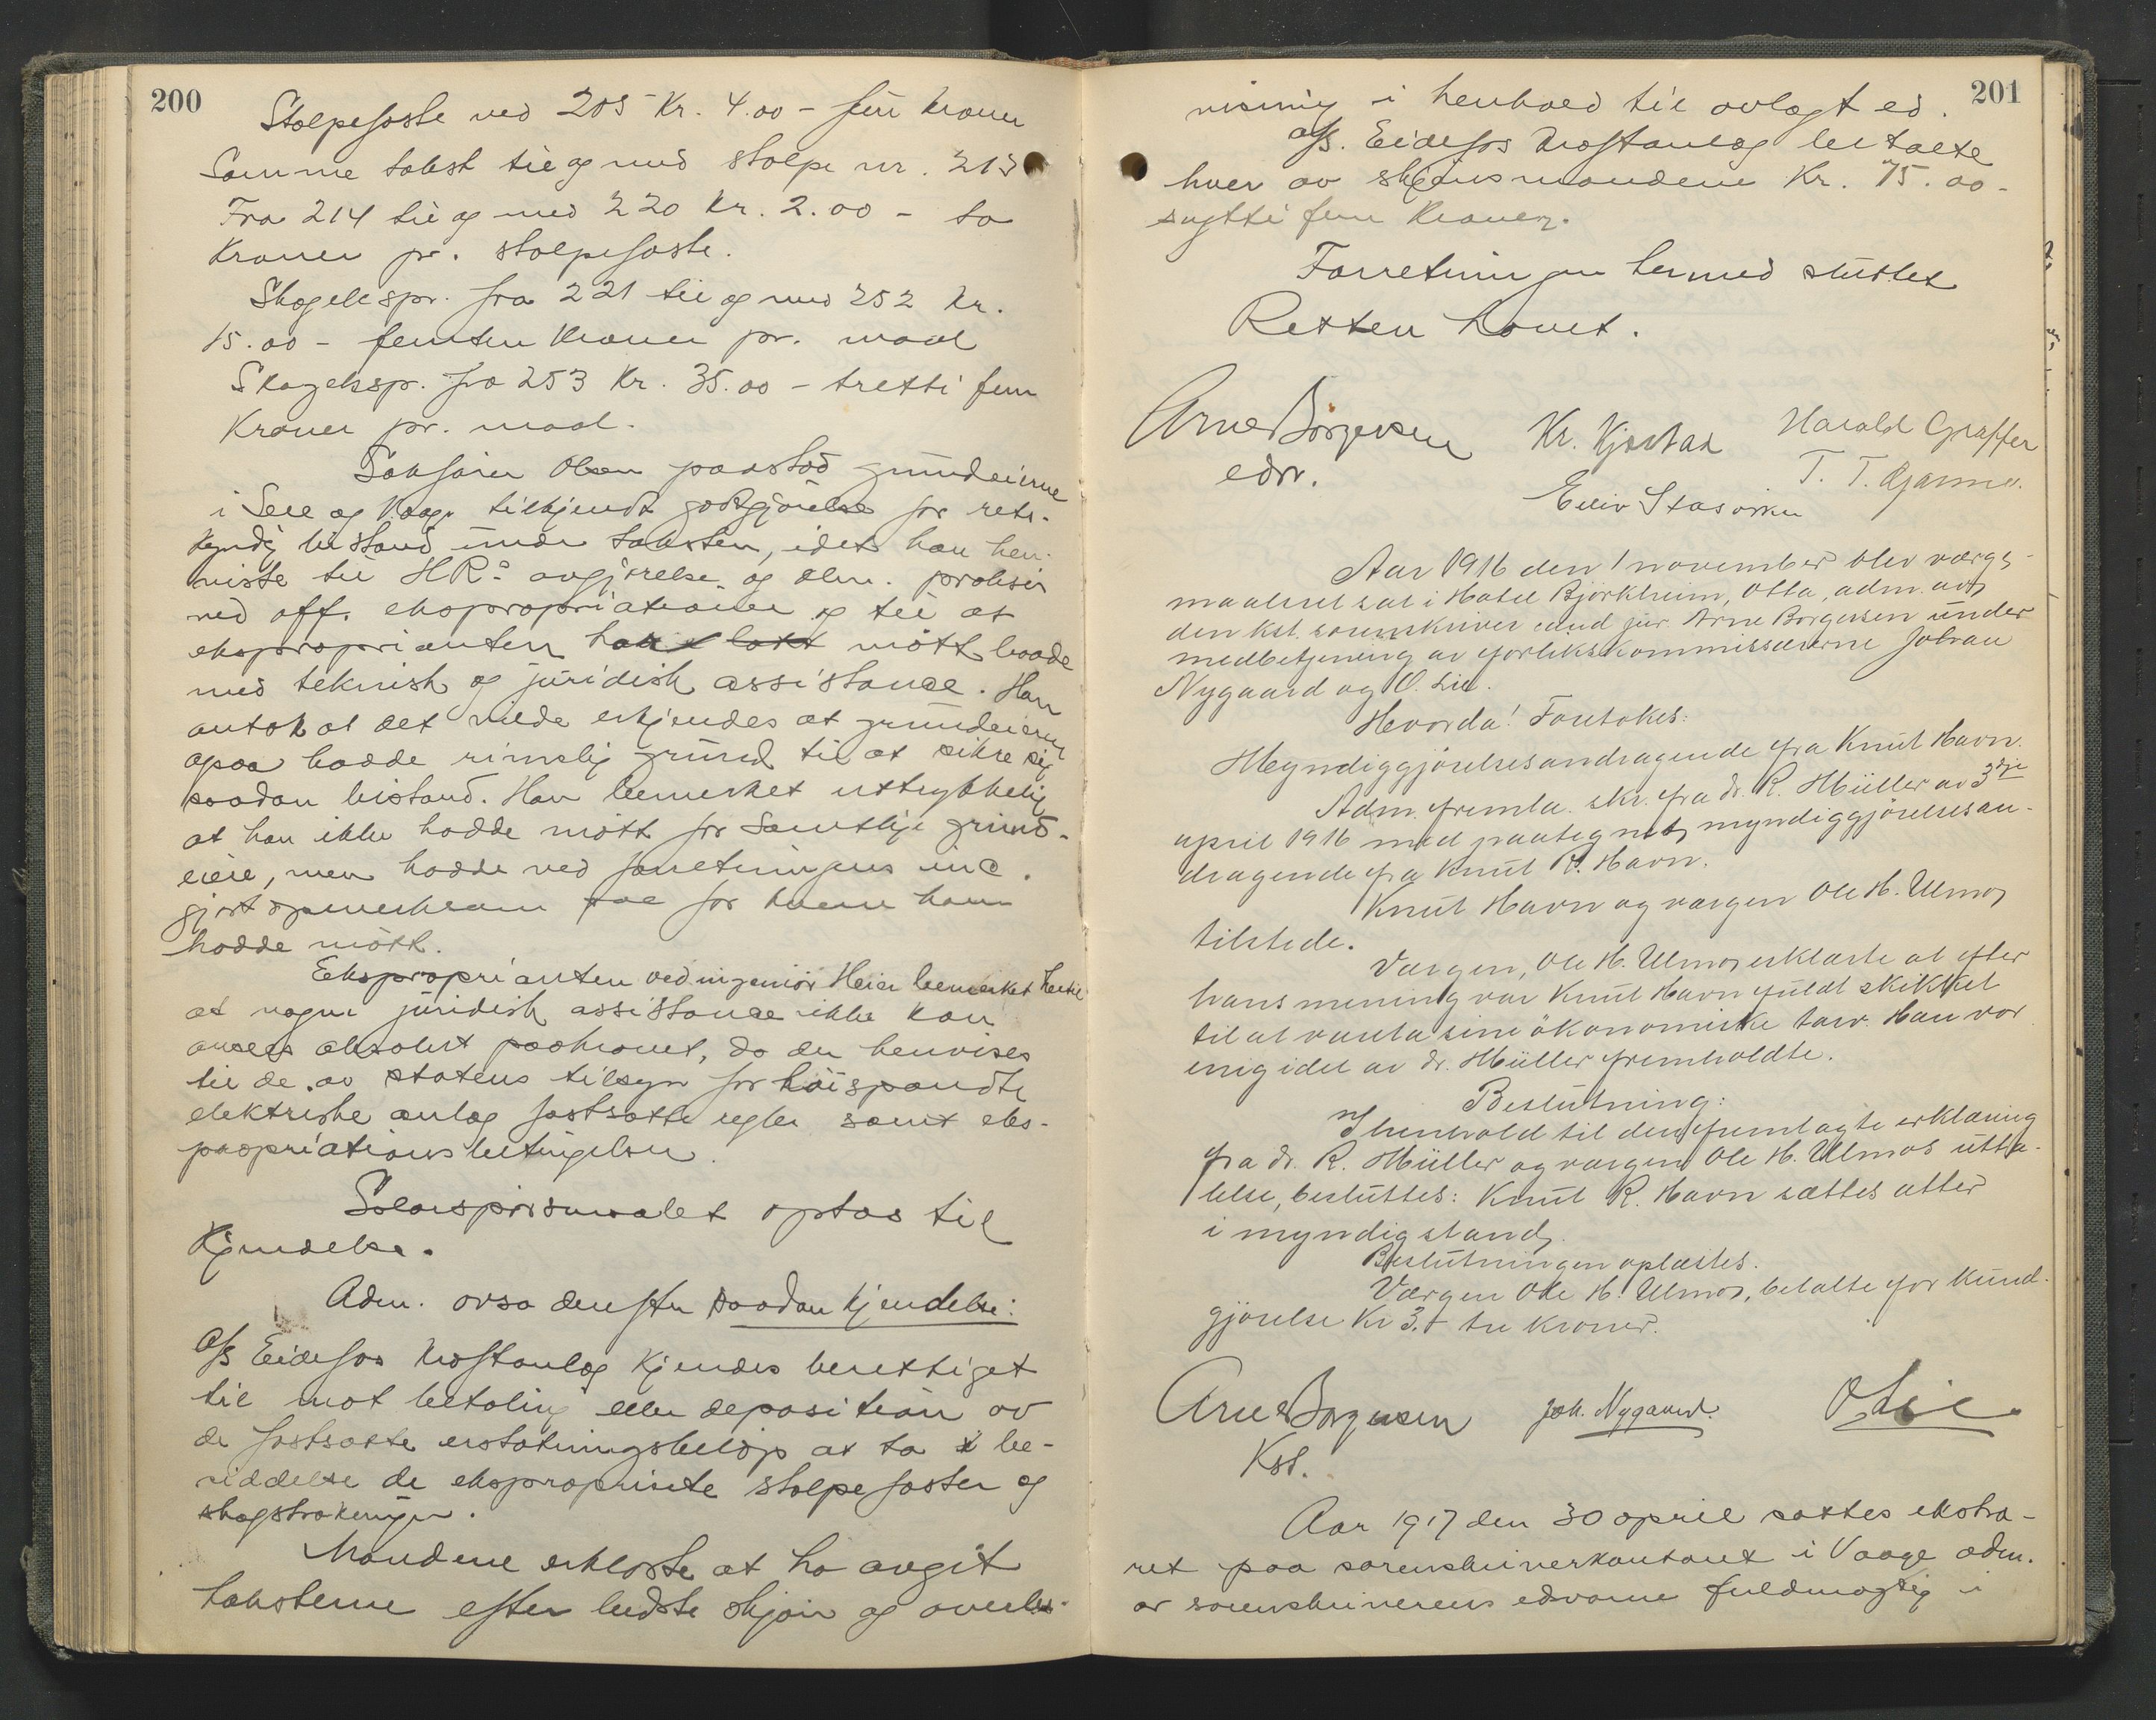 200
Stolpefæste ved 205 Kr. 4.00 – fire kroner
Samme takst til og med stolpe nr. 213
Fra 214 til og med 220 Kr. 2.00 – to
Kroner pr. stolpefæste.
Skogekspr. fra 221 til og med 252 Kr.
15.00 – femten Kroner pr. maal
Skogeksp. fra 253 Kr. 35.00 – tretti fem
Kroner pr. maal.
Sakfører Olsen paastod grundeierne
i Sell og Vaage tilkjendt godtgjørelse for rets-
kyndig bistand under taksten, idet han hen-
viste til HR:s avgjørelse og alm. praksis
ved off. ekspropriationer og til at
eksproprianten har møtt baade
med teknisk og juridisk assistance. Han
antok at det vilde erkjendes at grundeierne
ogsaa hadde rimelig grund til at sikre sig
saadan bistand. Han bemerket uttrykkelig
at han ikke hadde møtt for samtlige grund-
eiere, men hadde ved forretningens
gjort opmerksom paa for hvem han
hadde møtt.
Eksproprianten ved ingeniør Heier bemerket hertil
at nogen juridisk assistance ikke kan
ansees absolut paakrævet, da der henvises
til de av statens tilsyn for høispændte
elektriske anlæg fastsatte regler samt eks-
propriationsbetingelser.
Salærspørsmaalet optas til
Kjendelse.
Adm. avsa derefter saadan Kjendelse:
A/S Eidefos Kraftanlæg Kjendes berettiget
til mot betaling eller deposition av
de fastsatte erstatningsbeløp at ta i be-
siddelse de eksproprierte stolpefæster og
skogstrækninger.
Mændene erklærte at ha avgit
taksterne efter bedste skjøn og overbe-
201
visning i henhold til avlagt ed.
A/S. Eidefos Kraftanlæg betalte
hver av skjønsmændene Kr. 75.00 –
sytti fem Kroner.
Forretningen hermed sluttet
Retten hævet.
Arne Borgersen Kr. Kjæstad Harald Græffer
edsv. Eiliv Stasviken T. T.
Aar 1916 den 1 november blev værge-
maalsret sat i Hotel Bjørkheim, Otta, adm. av
den kst. sorenskriver cand jur. Arne Borgersen under
medbetjening av forlikskommissærerne Johan
Nygaard og O. Lie.
Hvorda! Foretokes:
Myndiggjørelsesandragende fra Knut Havn.
Adm. fremla. skr. fra dr. R. Müller av 3dje
april 1916 med paategnet myndiggjørelsesan-
dragende fra Knut R. Havn.
Knut Havn og værgen Ole H. Ulmo,
tilstede.
Værgen, Ole H. Ulmo, erklærte at efter
hans mening var Knut Havn fuldt skikket
til at vareta sine økonomiske tarv. Han var
enig i det av dr. Müller fremholdte.
Beslutning:
I henhold til den fremlagte erklæring
fra dr. R. Müller og værgen Ole H. Ulmos utta-
lelse, besluttes: Knut R. Havn sættes atter
i myndig stand,
Beslutningen oplæstes.
Værgen Ole H. Ulmo, betalte for kund-
gjørelse Kr 3.– tre kroner.
Arne Borgersen Joh. Nygaard. O Lie
Kst.
Aar 1917 den 30 april sattes ekstra-
ret paa sorenskriverkontoret i Vaage adm.
av sorenskriverens edsvorne fuldmægtig i